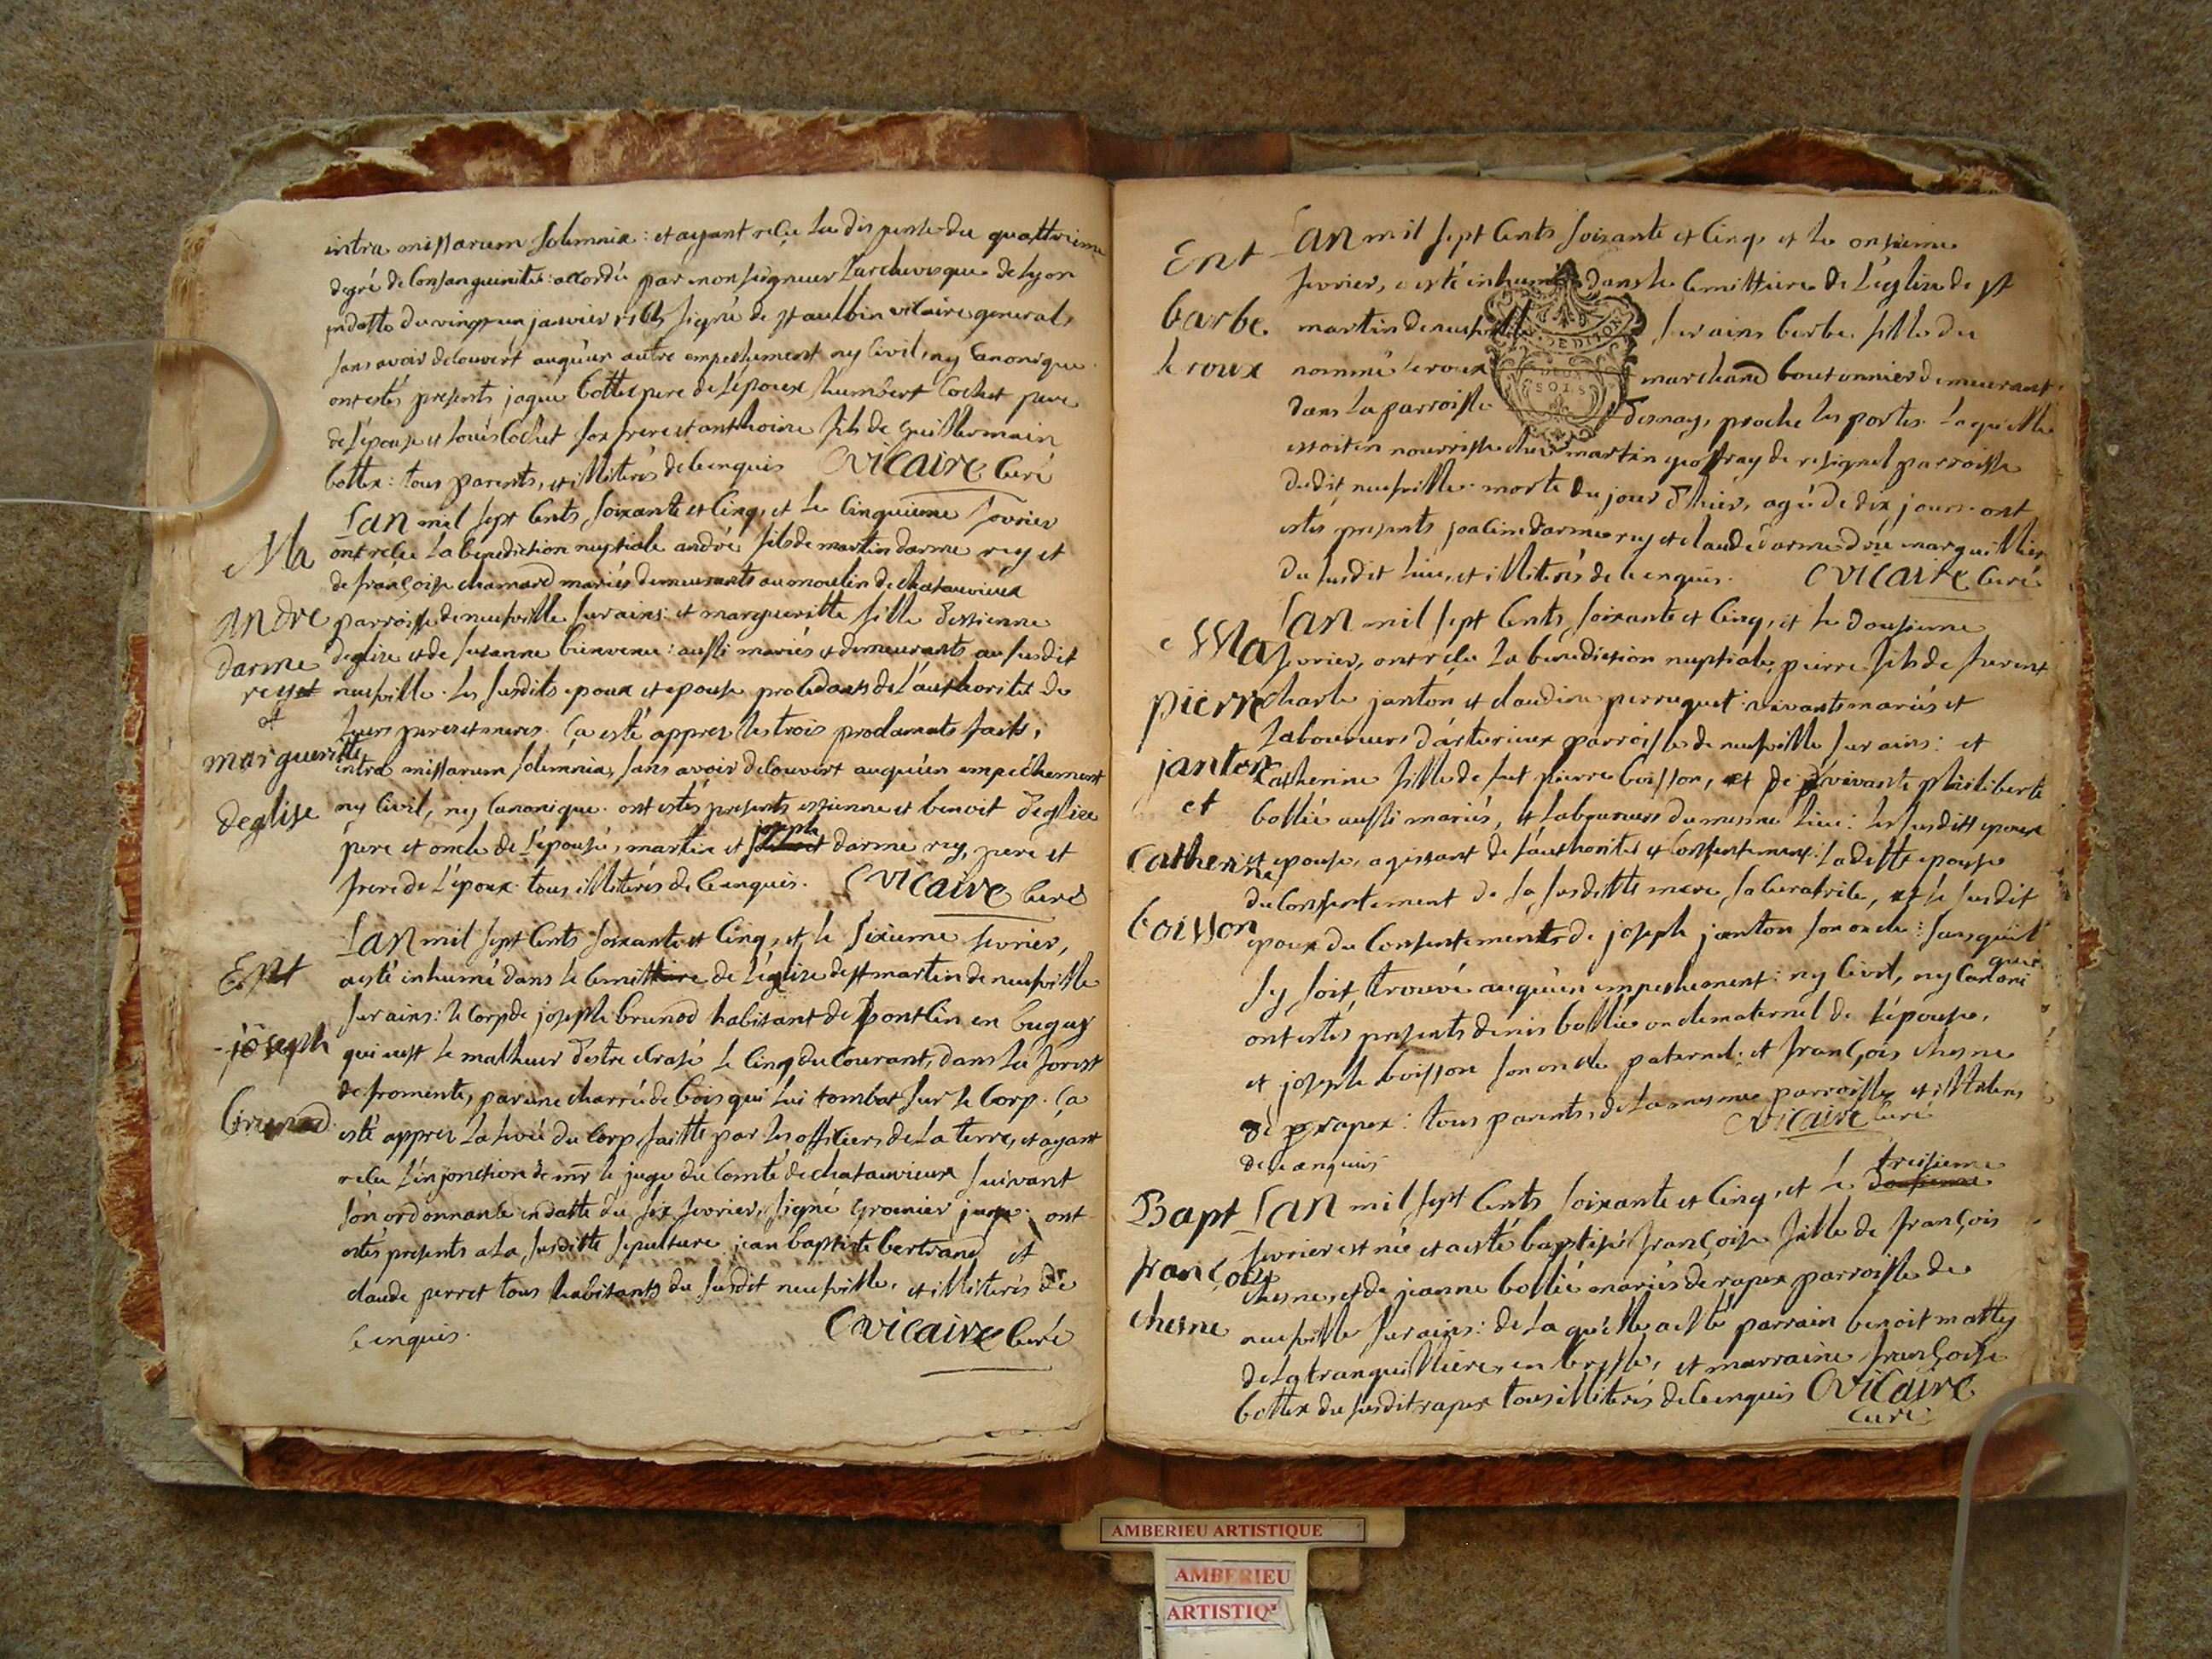 intra missarum solemnia : et ayant reçu la dispense du quattrieme
degré de consanguinité : accordée par monseigneur l'archevesque de lyon
en datte du vingt un janvier 1765 signé de st aulbin vicaire general,
sans avoir decouvert auqu'un autre empeschement ny civil, ny canonique
ont estés presents jaque bottex pere de l'epoux, humbert cochet pere
de l'epouse et louis cochet son frere et anthoine fils de guillermain
bottex : tous parents, et illiterés de ce enquis CVICAIRE curé
Ma
andre
darme
rey et
et
marguerithe
deglise
L'an mil sept cents soixante et cinq, et le cinquieme fevrier
ont reçu la benediction nuptiale andré fils de martin darme rey et
de françoise chamard mariés demeurants au moulin de chatauvieux
parroisse de neufville sur ains : et marguerithe fille d'estienne
deglise et de susanne bienvenu : aussi mariés et demeurants au susdit
neufville. les susdits epoux et epouse procedants de l'authorité de
leurs peres et meres. ça esté apprez les trois proclamats faits,
intra missarum solemnia, sans avoir decouvert auqu'un empêchement
ny civil, ny canonique. ont estés presents estienne et benoit deglise
pere et oncle de l'epouse, martin et joseph darme rey, pere et
frere de l'epoux. tous illiterés de ce enquis. CVICAIRE curé
Ent
joseph
brunod
L'an mil sept cents soixante et cinq, et le sixieme fevrier,
a esté inhumé dans le cemittaire de l'église de st martin de neufville
sur ains : le corp de joseph brunod habitant de pontcin en bugey
qui eust le malheur d'estre ecrasé le cinq du courant, dans la forest
de fromente, par une charrée de bois qui lui tombat sur le corp. ça
esté apprez la levée du corp faitte par les officiers de la terre, et ayant
reçu l'injonction de mr le juge du comté de chatauvieux suivant
son ordonnance en datte du six fevrier, signé gromier juge. ont
estés presents a la susditte sepulture jean baptiste bertrand et
claude perret tous habitants du susdit neufville, et illiterés de
ce enquis. CVICAIRE curé
Ent
barbe
leroux
L'an mil sept cents soixante et cinq et le onsieme
fevrier, a esté inhumée dans le cemittaire de l'église de st
martin de neufville sur ains barbe fille du
nommé leroux marchand boutonnier demeurant
dans la parroisse d'esnay, proche les portes. laquelle
estoit en nourrisse chez martin geoffray de resignel parroisse
dudit neufville. morte du jour d'hier, agé de dix jours. ont
estés presents joachim darme rey et claude darme d'rée marguillier
du susdit lieu, et illiterés de ce enquis. CVICAIRE curé
Ma
pierre
janton
et
catherine
boisson
L'an mil sept cents soixante et cinq, et le dousieme
fevrier, ont reçu la benediction nuptiale, pierre fils de furent
charle janton et claudine perruquet : vivants mariés et
laboureurs d'arturieux parroisse de neufville sur ains : et
catherine fille de fut pierre boisson, et de vivante philiberte
bollié aussi mariés, et laboureurs du mesme lieu : les susdits epoux
et epouse, agissant de l'authorité et consentement : laditte epouse
du consentement de sa susditte mere, sa curatrice, et le susdit
epoux du consentement de joseph janton son oncle : sans qu'il
s'y soit trouvé auqu'un empeschement : ny civil, ny canonique
ont estés presents denis bollié oncle maternel de l'epouse,
et joseph boisson son oncle paternel : et françois chesne
de rapex : tous parents, de la mesme parroisse et illiterés
de ce enquis CVICAIRE curé
Bapt
françoise
chesne
L'an mil sept cents soixante et cinq, et le dousieme treisieme
fevrier est née et a esté baptisée françoise fille de françois
chesne, et de jeanne bollié mariés de rapex parroisse de
neufville sur ains : de laquelle a esté parrain benoit mattey
de la tranquilliere, en bresse, et marraine françoise
bottex du susdit rapex tous illiterés de ce enquis CVICAIRE
curé
AMBERIEU ARTISTIQUE
AMBERIEU
ARTISTIQ